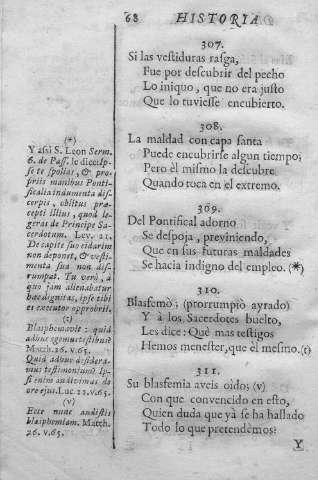 68 HISTORIA
307.
Si las vestiduras rasga,
Fue por descubrir del pecho
Lo iniquo, que no era justo
Que lo tuviesse encubierto.
308.
La maldad con capa santa
Puede encubrirse algun tiempo;
Pero èl mismo la descubre
Quando toca en el extremo.
369.
Del Pontifical adorno
Se despoja, previniendo,
Que en sus futuras maldades
Se hacia indigno del empleo. (*)
310.
Blasfemò; (prorrumpiò ayrado)
Y à los Sacerdotes buelto,
Les dice: Què mas testigos
Hemos menester, que èl mesmo. (t)
311.
Su blasfemia aveis oido; (v)
Con que convencido en esto,
Quien duda que yà se ha hallado
Todo lo que pretendèmos?
Y
(*)
Y assi S. Leon Serm.
6. de Pass. le dice: Ip-
se te spoliat, & pro-
priis manibus Ponti-
ficalia indumenta dis-
cerpis, oblitus præ-
cepti illius, quod le-
geras de Principe Sa-
cerdotum. Lev. 21.
De capite suo cidarim
non deponet, & vesti-
menta sua non dis-
rumpat. Tu verò, à
quo jam alienabatur
hæc dignitas, ipse tibi
es executor opprobrii.
(t)
Blasphemavit: quid
adhuc egemus testibus?
Matth. 26. v. 65.
Quid adhuc desidera-
mus testimonium? Ip-
si enim audivimus de
ore ejus. Luc. 22. v. 65.
(v)
Ecce nunc audistis
blasphemiam. Matth.
26. v. 65.